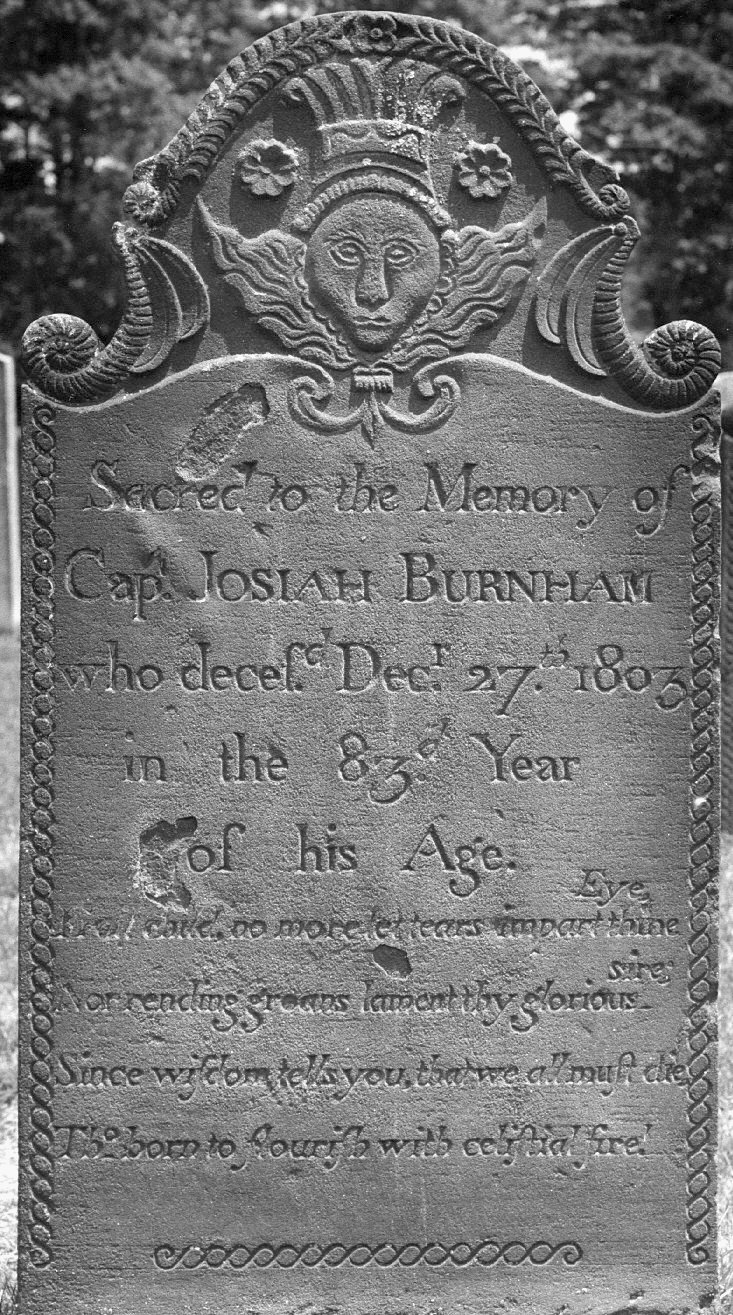 Sacred to the Memory of
Capt. JOSIAH BURNHAM
who deceſ.ᵉᵈ Decʳ. 27.ᵗʰ 1803
in the 83.ᵈ Year
of his Age.
child, no more let tears impart thine Eye,
Nor rending groans lament thy glorious sire;
Since wiſdom, tells you, that we all muſt die,
Thº. born to flouriſh with celiſtial fire!